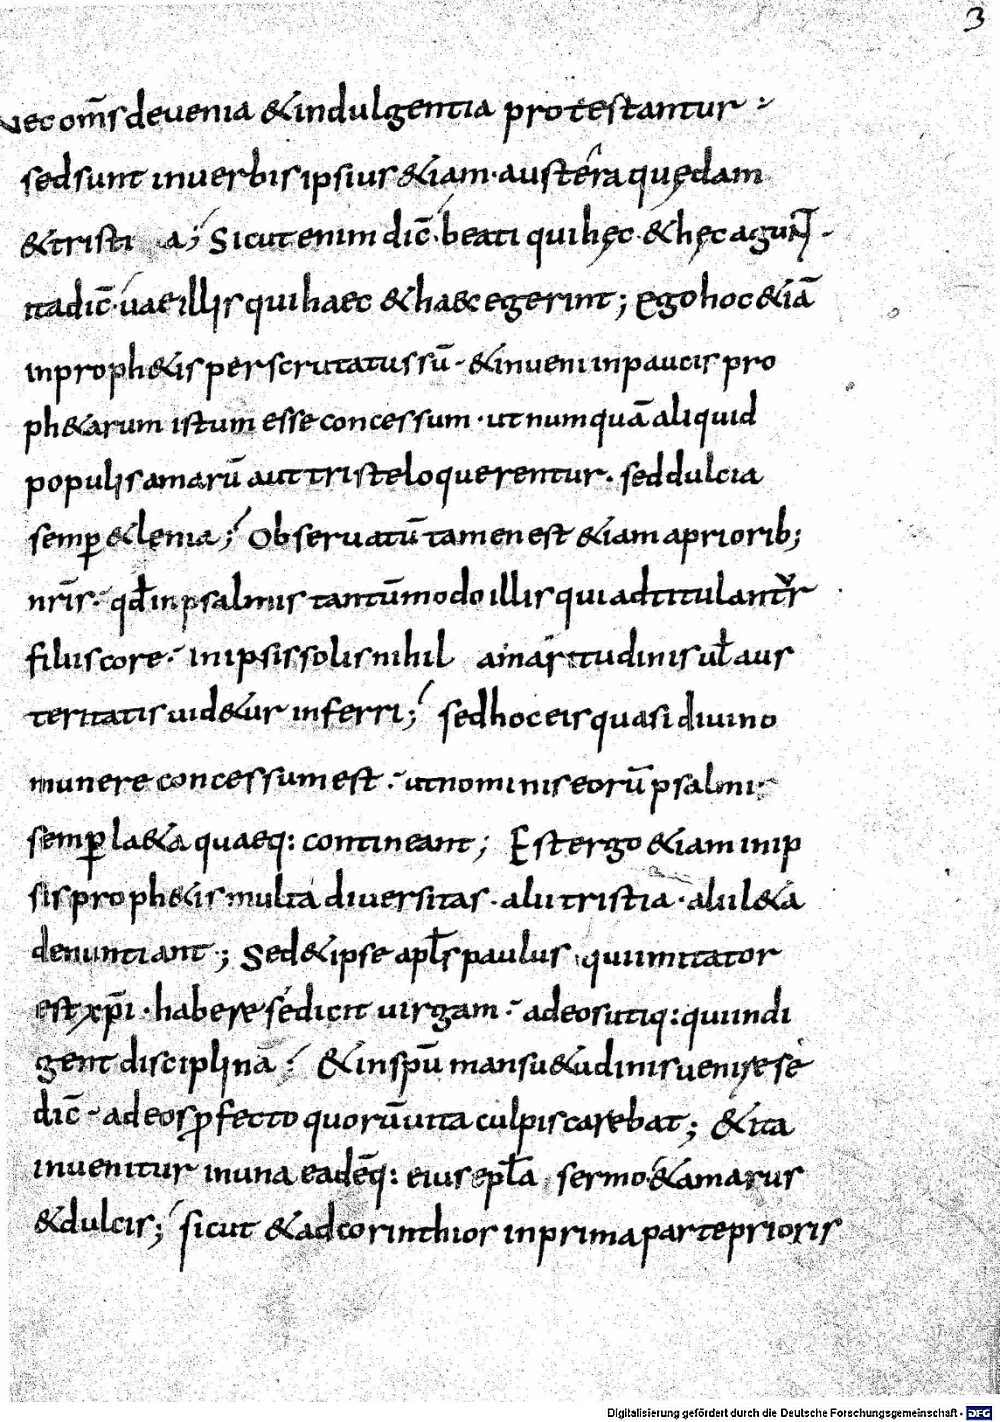 3
nec om̄s de uenia & indulgentia protestantur ·
sed sunt in uerbis ipsius &iam · austera quędam
&tristi a; Sicut enim dic̄ · beati qui hęc · & hęc agunt ·
ita dic̄ · uae illis qui haec & haec egerint; Ego hoc &iā
in proph&is perscrutatus sū · & inueni in paucis pro
ph&arum istum esse concessum · ut numquā aliquid
populis amarū aut triste loquerentur · sed dulcia
semꝑ & lenia; Obseruatū tamen est &iam a priorib;
nr̄is · qd̄ in psalmis tantūmodo illis qui adtitulantr̄
filiis core · in ipsis solis nihil amaritudinis ul̄ aus
teritatis uid&ur inferri; sed hoc eis quasi diuino
munere concessum est · ut nominis eorū psalmi
semꝑ la&a quaeq: contineant; Est ergo &iam in ip
sis proph&is multa diuersitas · alii tristia · alii l&a
denuntiant; Sed & ipse apl̄s paulus qui imitator
est xp̄i · habere se dicit uirgam · ad eos utiq: qui indi
gent disciplinā · & in spū mansu&udinis uenire se
dic̄ · ad eos ꝓfecto quorū uita culpis carebat; & ita
inuenitur in una eadēq: eius epl̄a sermo & amarus
& dulcis; sicut & ad corinthios in prima parte prioris
Digitalisierung gefördert durch die Deutsche Forschungsgemeinschaft - DFG